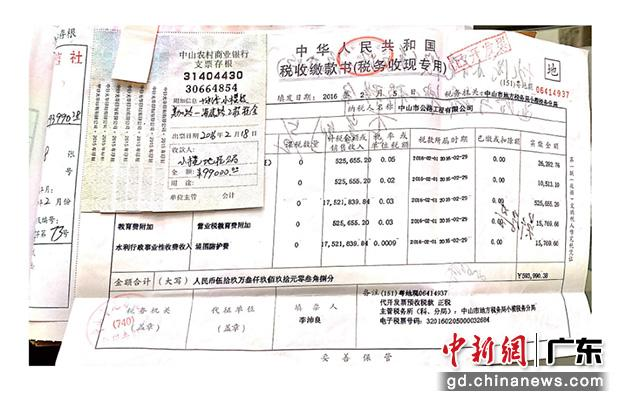 中山农村商业银行
支票存根
31404430
30664854
附加信息
出票日期2016年2月18日
收款人:
小榄地税分局
金 额:¥99000.00
用 途:
单位主管 会计
中华人民共和国
税收缴款书(税务收现专用)
已开发票
地
(151)粤地现
06414937
填发日期: 2016 年 2 月 5 日
税务机关: 中山市地方税务局小榄税务分局
纳税人名称 中山市公路工程有限公司
课税数量
计税金额或销售收入
税率或单位税额
税款所属时期
已缴或扣除额
实缴金额
0 525,655.20 0.05 2016-02-01 2016-02-29 0.00 26,282.76
0 525,655.20 0.02 2016-02-01 2016-02-29 0.00 10,513.10
0 17,521,839.84 0.03 2016-02-01 2016-02-29 0.00 525,655.20
教育费附加 营业税教育费附加 0 525,655.20 0.03 2016-02-01 2016-02-29 0.00 15,769.66
水利行政事业性收费收入 堤围防护费 0 17,521,839.84 0.0009 2016-02-01 2016-02-29 0.00 15,769.66
金额合计 (大写) 人民币伍拾玖万叁仟玖佰玖拾元零叁角捌分
¥593,990.38
税务机关
(盖章)
代征单位
(盖章)
填票人
李沛良
备注 (151)粤地现06414937
代开发票预征税款 正税
主管税务所(科、分局):中山市地方税务局小榄税务分局
电子税票号码: 320160205000032684
(740)
妥善保管
73号
中新网 广东
gd.chinanews.com